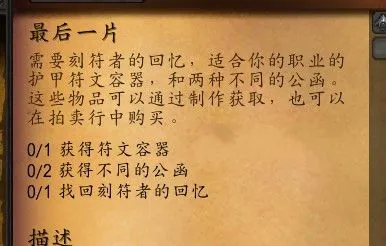 最后一片
需要刻符者的回忆，适合你的职业的
护甲符文容器，和两种不同的公函。
这些物品可以通过制作获取，也可以
在拍卖行中购买。
0/1 获得符文容器
0/2 获得不同的公函
0/1 找回刻符者的回忆
描述